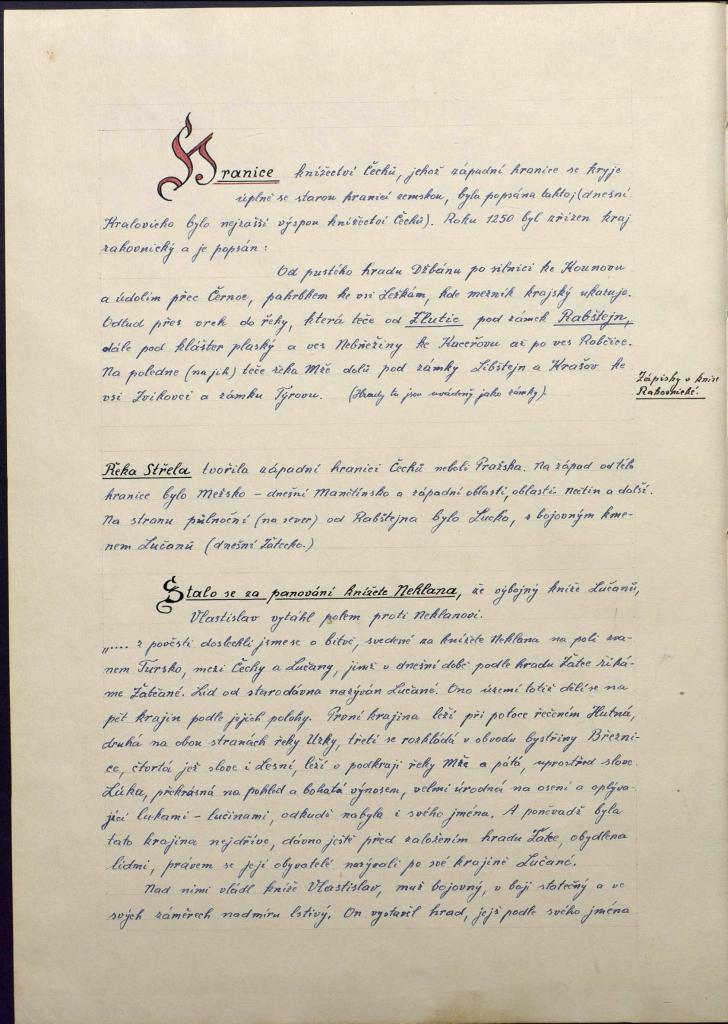 Hranice knížectví Čechů, jehož západní hranice se kryje
úplně se starou hranicí zemskou, byla popsána takto: (dnešní
Kralovicko bylo nejzašší výspou knížectví Čechů). Roku 1250 byl zřízen kraj
rakovnický a je popsán:
Od pustého hradu Džbánu po silnici ke Kounovu
a údolím přec Černoc, pahrbkem ke vsi Ležkám, kde mezník krajský ukazuje.
Odtud přes vrch do řeky, která teče od Žlutic pod zámek Rabštejn,
dále pod klášter plaský a ves Nebřeziny ke Kaceřovu až po ves Robčice.
Na poledne (na jih) teče řeka Mže dolů pod zámky Libštejn a Krašov ke
vsi Zvíkovci a zámku Týrovu. (Hrady tu jsou uváděny jako zámky).
Zápisky v knize
Rakovnické.
Řeka Střela tvořila západní hranici Čechů neboli Pražska. Na západ od této
hranice bylo Mežsko – dnešní Manětínsko a západní oblasti, oblasti Nečtin a další.
Na stranu půlnoční (na sever) od Rabštejna bylo Lucko, s bojovným kme-
nem Lučanů (dnešní Žatecko.)
Stalo se za panování knížete Neklana, že výbojný kníže Lučanů,
Vlastislav vytáhl polem proti Neklanovi.
„.... z pověsti doslechli jsme se o bitvě, svedené za knížete Neklana na poli zva-
ném Tursko, mezi Čechy a Lučany, jimž v dnešní době podle hradu Žatec říká-
me Žatčané. Lid od starodávna nazýván Lučané. Ono území totiž dělí se na
pět krajin podle jejich polohy. První krajina leží při potoce řečeném Hutná,
druhá na obou stranách řeky Uzky, třetí se rozkládá v obvodu bystřiny Březni-
ce, čtvrtá jež slove i Lesní, leží v podkraji řeky Mže a pátá, uprostřed slove
Lúka, překrásná na pohled a bohatá výnosem, velmi úrodná na osení a oplýva-
jící lukami – lučinami, odkudž nabyla i svého jména. A poněvadž byla
tato krajina nejdříve, dávno ještě před založením hradu Žatce, obydlena
lidmi, právem se její obyvatelé nazývali po své krajině Lučané.
Nad nimi vládl kníže Vlastislav, muž bojovný, v boji statečný a ve
svých záměrech nadmíru lstivý. On vystavil hrad, jejž podle svého jména